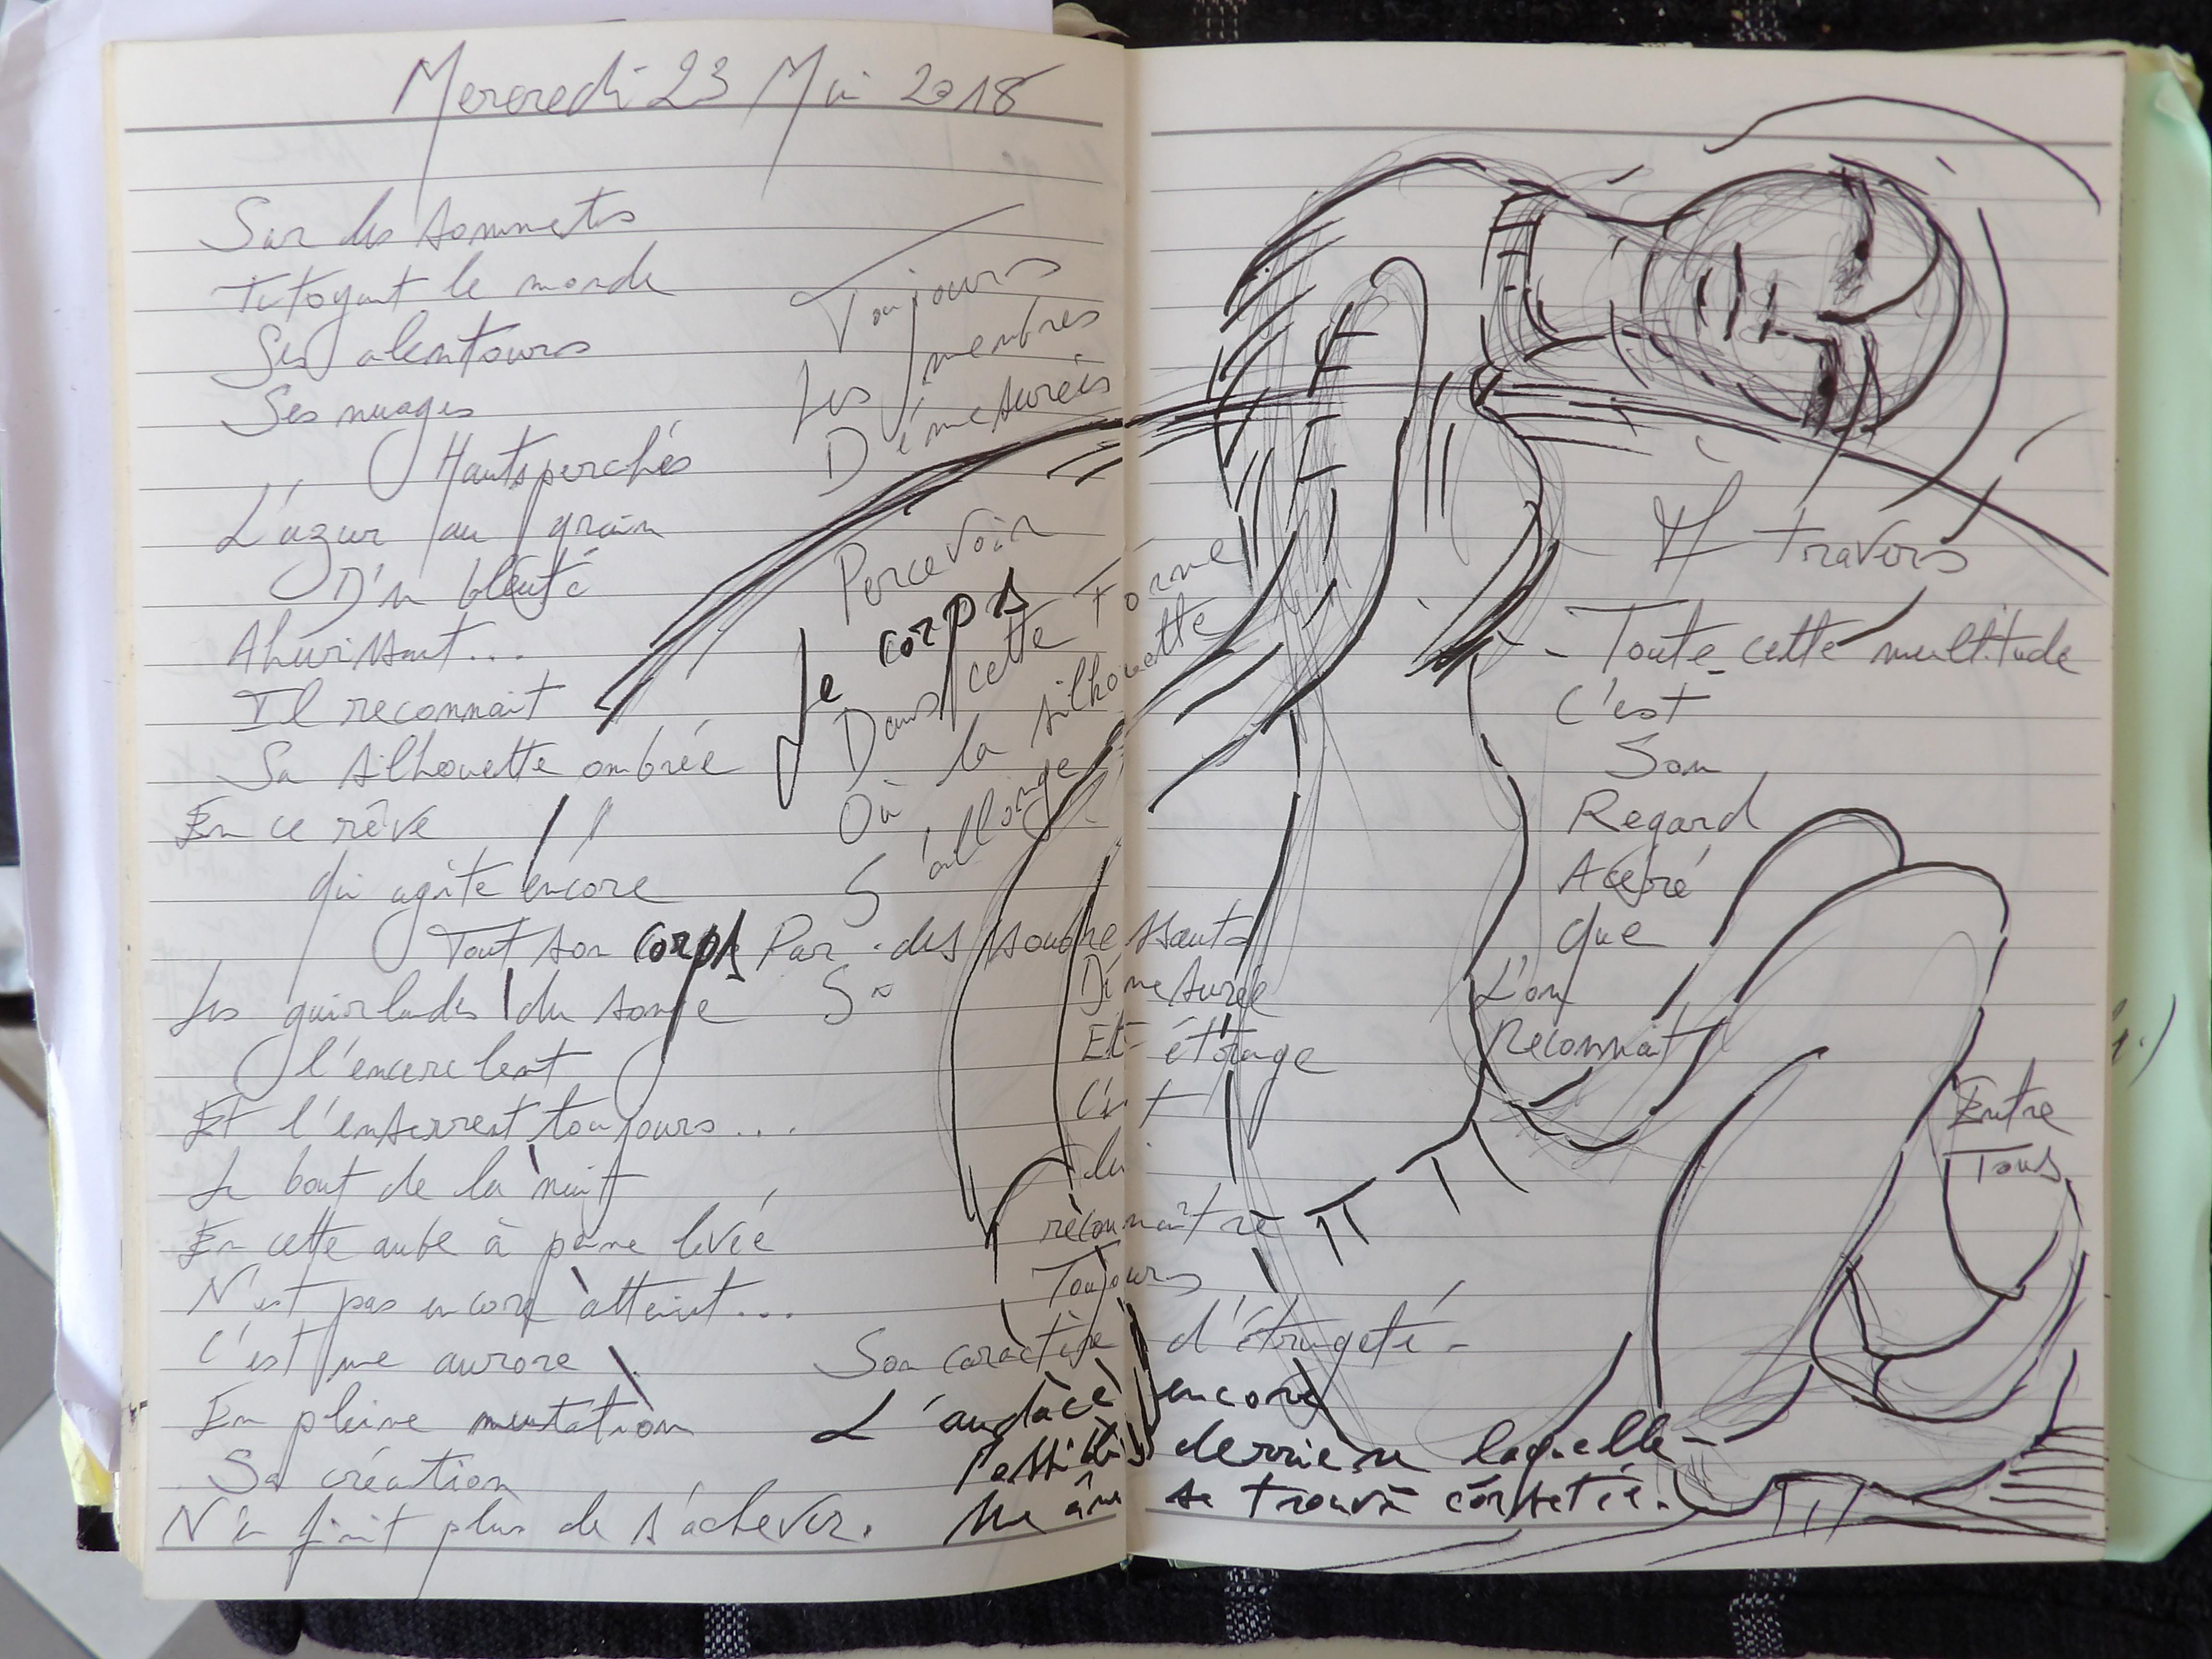 Mercredi 23 Mai 2018
Sur des sommets
Tutoyant le monde
Ses alentours
Ses nuages
Hauts perchés
L'azur au grain
D'un bleuté
Ahurissant...
Il reconnait
Sa silhouette ombrée
En ce rêve
qui agite encore
Tout son corps Par des soubresauts
Les guirlandes du songe
l'encerclent
Et l'enserrent toujours...
Le bout de la nuit
En cette aube à peine levée
N'est pas encore atteint...
C'est une aurore
En pleine mutation
Sa création
N'en finit plus de s'achever.
Toujours
Les membres
Démesurés
Percevoir
Le corps
Dans cette Forme
Où la silhouette
S'allonge
Démesurée
Et étrange
C'est
lui
reconnaître
Toujours
Son caractère d'étrangeté -
L'audace encore
derrière laquelle
Une âme se trouve corsetée.
A travers
- Toute cette multitude
C'est
Son
Regard
Acéré
Que
L'on
Reconnait
Entre
Tous